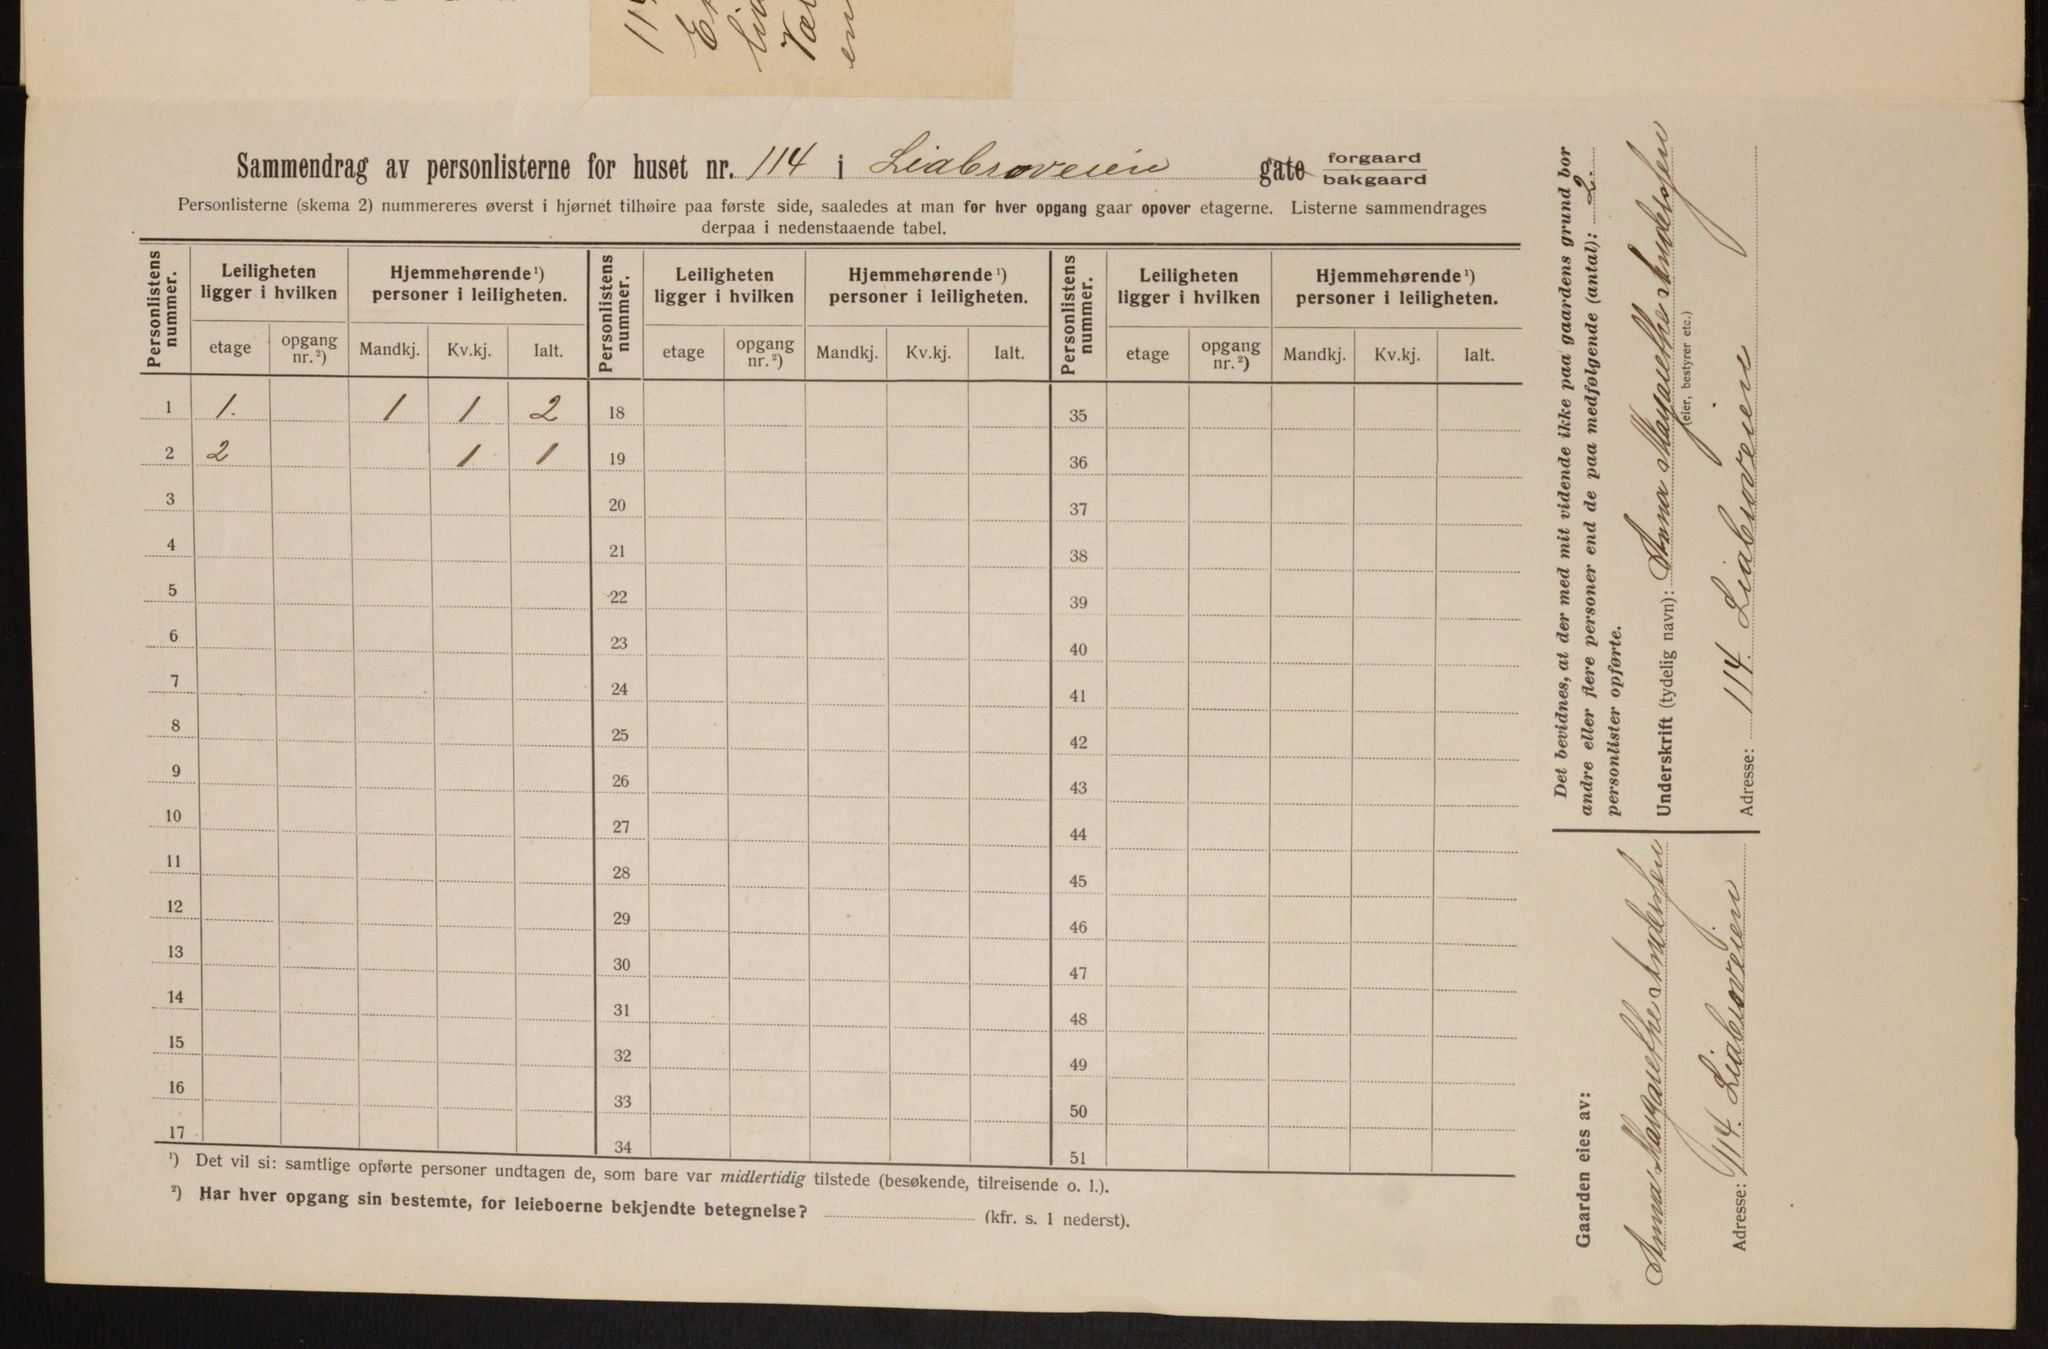 Sammendrag av personlisterne for huset nr. 114 i Liabroveien gate forgaard bakgaard
Personlisterne (skema 2) nummereres øverst i hjørnet tilhøire paa første side, saaledes at man for hver opgang gaar opover etagerne. Listerne sammendrages
derpaa i nedenstaaende tabel.
Personlistens nummer. Leiligheten ligger i hvilken Hjemmehørende ¹) personer i leiligheten. Personlistens nummer. Leiligheten ligger i hvilken Hjemmehørende ¹) personer i leiligheten. Personlistens nummer. Leiligheten ligger i hvilken Hjemmehørende ¹) personer i leiligheten.
etage opgang nr. ²) Mandkj. Kv.kj. Ialt. etage opgang nr. ²) Mandkj. Kv.kj. Ialt. etage opgang nr. ²) Mandkj. Kv.kj. Ialt.
1 1. 1 1 2 18 35
2 2 1 1 19 36
3 20 37
4 21 38
5 22 39
6 23 40
7 24 41
8 25 42
9 26 43
10 27 44
11 28 45
12 29 46
13 30 47
14 31 48
15 32 49
16 33 50
17 34 51
¹) Det vil si: samtlige opførte personer undtagen de, som bare var midlertidig tilstede (besøkende, tilreisende o. l.).
²) Har hver opgang sin bestemte, for leieboerne bekjendte betegnelse? (kfr. s. 1 nederst).
Det bevidnes, at der med mit vidende ikke paa gaardens grund bor
andre eller flere personer end de paa medfølgende (antal): 2.
personlister opførte.
Underskrift (tydelig navn): Anna Margarethe Anderssen
(eier, bestyrer etc.)
Adresse: 114. Liabroveien
Gaarden eies av:
Anna Margarethe Anderssen
Adresse: 114. Liabroveien